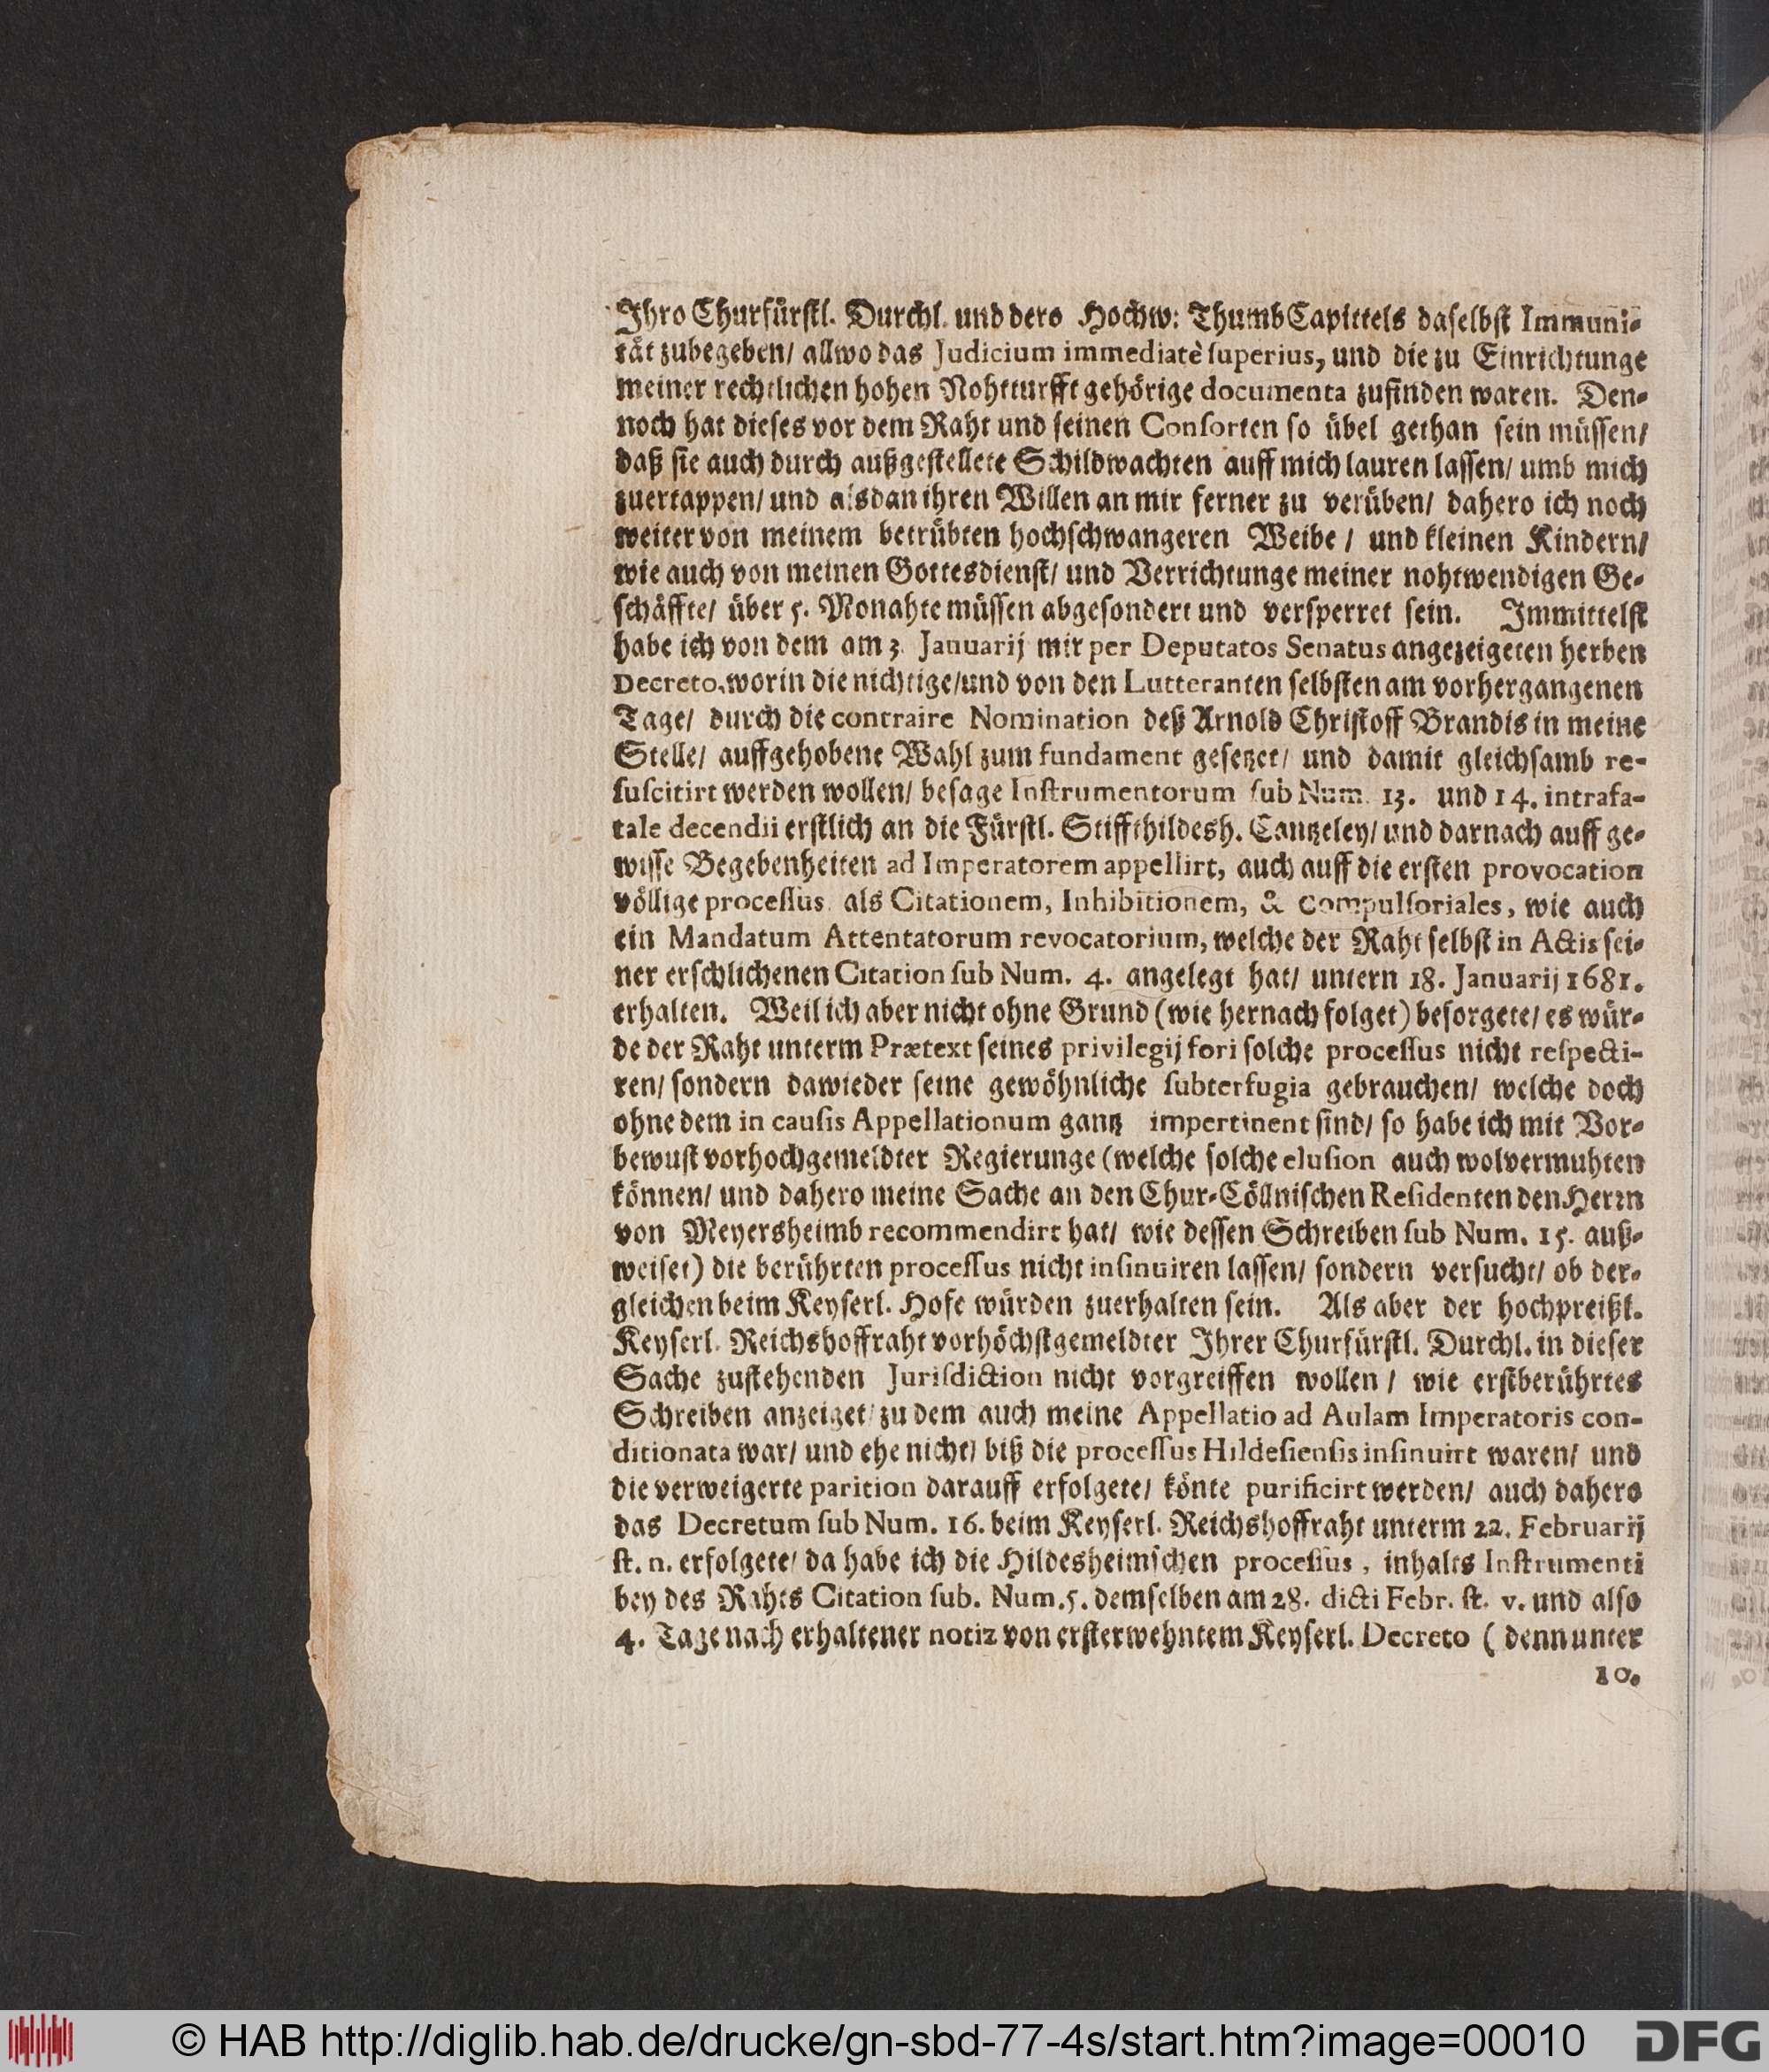 Ihro Churfürstl. Durchl. und dero Hochw: ThumbCapittels daselbst Immuni-
tät zubegeben/ allwo das Judicium immediatè superius, und die zu Einrichtunge
meiner rechtlichen hohen Nohtturfft gehörige documenta zufinden waren. Den-
noch hat dieses vor dem Raht und seinen Consorten so übel gethan sein müssen/
daß sie auch durch außgestellete Schildwachten auff mich lauren lassen/ umb mich
zuertappen/ und alsdan ihren Willen an mir ferner zu verüben/ dahero ich noch
weiter von meinem betrübten hochschwangeren Weibe / und kleinen Kindern/
wie auch von meinen Gottesdienst/ und Verrichtunge meiner nohtwendigen Ge-
schäffte/ über 5. Monahte müssen abgesondert und versperret sein. Immittelst
habe ich von dem am 3. Januarij mir per Deputatos Senatus angezeigeten herben
Decreto, worin die nichtige/und von den Lutteranten selbsten am vorhergangenen
Tage/ durch die contraire Nomination deß Arnold Christoff Brandis in meine
Stelle/ auffgehobene Wahl zum fundament gesetzet/ und damit gleichsamb re-
suscitirt werden wollen/ besage Instrumentorum sub Num. 13. und 14. intra fa-
tale decendii erstlich an die Fürstl. Stiffthildesh. Cantzeley/ und darnach auff ge-
wisse Begebenheiten ad Imperatorem appellirt, auch auff die ersten provocation
völlige processus, als Citationem, Inhibitionem, & Compulsoriales, wie auch
ein Mandatum Attentatorum revocatorium, welche der Raht selbst in Actis sei-
ner erschlichenen Citation sub Num. 4. angelegt hat/ untern 18. Januarij 1681.
erhalten. Weil ich aber nicht ohne Grund (wie hernach folget) besorgete/ es wür-
de der Raht unterm Prætext seines privilegij fori solche processus nicht respecti-
ren/ sondern dawieder seine gewöhnliche subterfugia gebrauchen/ welche doch
ohne dem in causis Appellationum gantz impertinent sind/ so habe ich mit Vor-
bewust vorhochgemeldter Regierunge (welche solche elusion auch wolvermuhten
können/ und dahero meine Sache an den Chur-Cöllnischen Residenten den Herrn
von Meyersheimb recommendirt hat/ wie dessen Schreiben sub Num. 15. auß-
weiset) die berührten processus nicht insinuiren lassen/ sondern versucht/ ob der-
gleichen beim Keyserl. Hofe würden zuerhalten sein. Als aber der hochpreißl.
Keyserl. Reichshoffraht vorhöchstgemeldter Ihrer Churfürstl. Durchl. in dieser
Sache zustehenden Jurisdiction nicht vorgreiffen wollen / wie erstberührtes
Schreiben anzeiget/ zu dem auch meine Appellatio ad Aulam Imperatoris con-
ditionata war/ und ehe nicht/ biß die processus Hildesiensis insinuirt waren/ und
die verweigerte parition darauff erfolgete/ könte purificirt werden/ auch dahero
das Decretum sub Num. 16. beim Keyserl. Reichshoffraht unterm 22. Februarij
st. n. erfolgete/ da habe ich die Hildesheimschen processus, inhalts Instrumenti
bey des Rahts Citation sub. Num. 5. demselben am 28. dicti Febr. st. v. und also
4. Tage nach erhaltener notiz von ersterwehntem Keyserl. Decreto ( denn unter
10.
© HAB http://diglib.hab.de/drucke/gn-sbd-77-4s/start.htm?image=00010
DFG